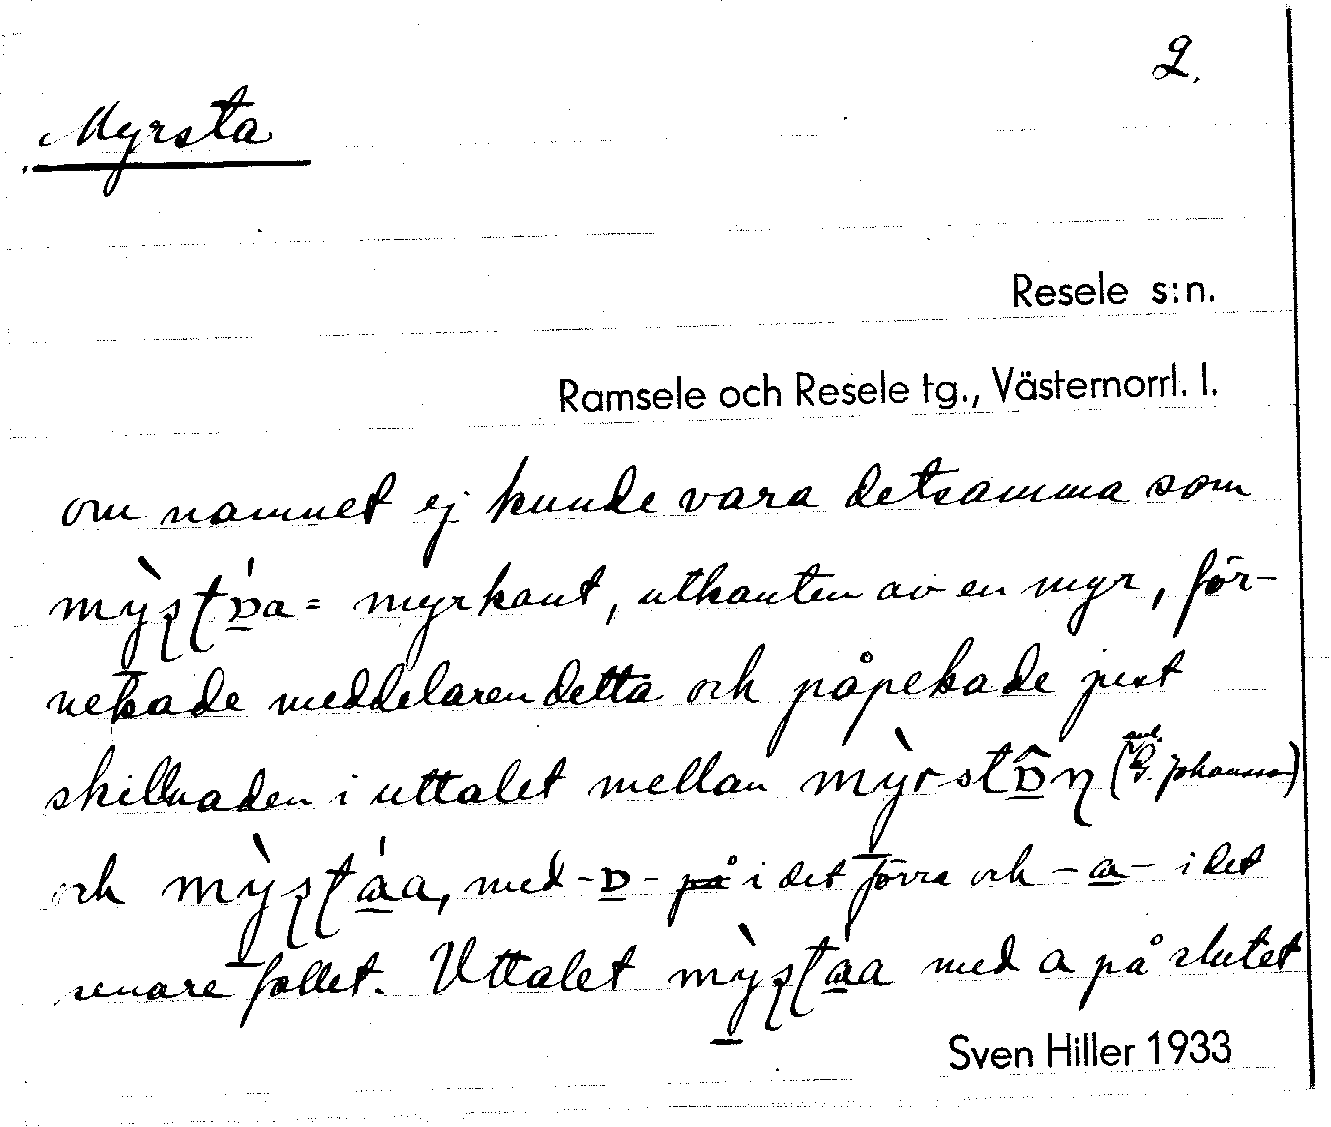 2.
Myrsta
Resele s:n.
Ramsele och Resele tg., Västernorrl. l.
om namnet ej kunde vara detsamma som
mỳ̱ʂʈɒ̱́a = myrkant, utkanten av en myr, för-
nekade meddelaren detta och påpekade just
skillnaden i uttalet mellan mỳrstɒ̱̂ɳ (enl. G. Johansson)
och mỳ̱ʂʈá̱a, med -ɒ̱- på i det förra och -a̱- i det
senare fallet. Uttalet mỳ̱ʂʈá̱a med a på slutet
Sven Hiller 1933